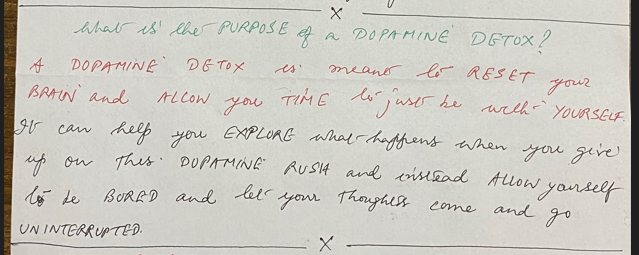 X
What is the PURPOSE of a DOPAMINE DETOX?
A DOPAMINE DETOX is meant to RESET your
BRAIN and ALLOW you TIME to just be with YOURSELF.
It can help you EXPLORE what happens when you give
up on this DOPAMINE RUSH and instead ALLOW yourself
to be BORED and let your thoughts come and go
UNINTERRUPTED.
X